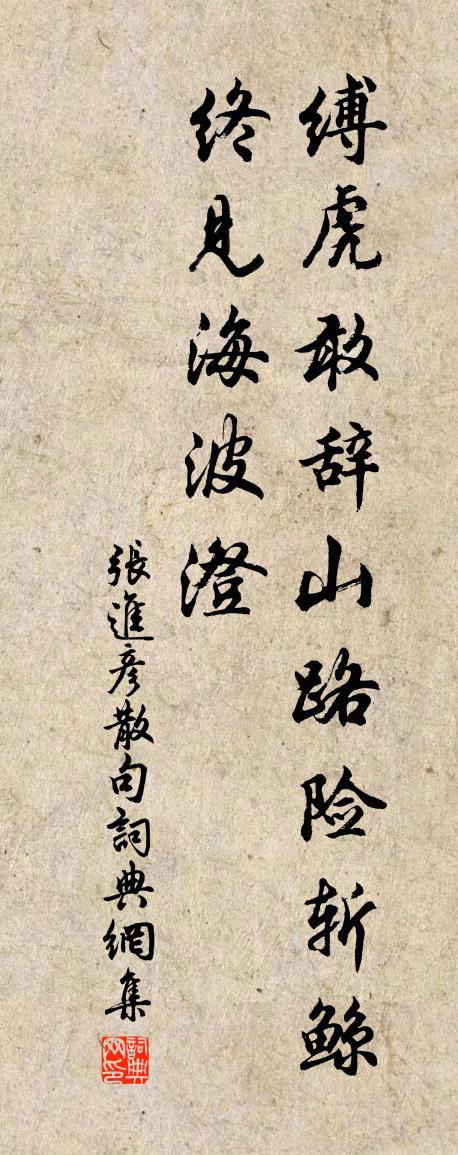 缚虎敢辞山路险斩鲸
终见海波澄
張進彦散句詞典網集
詞典网印